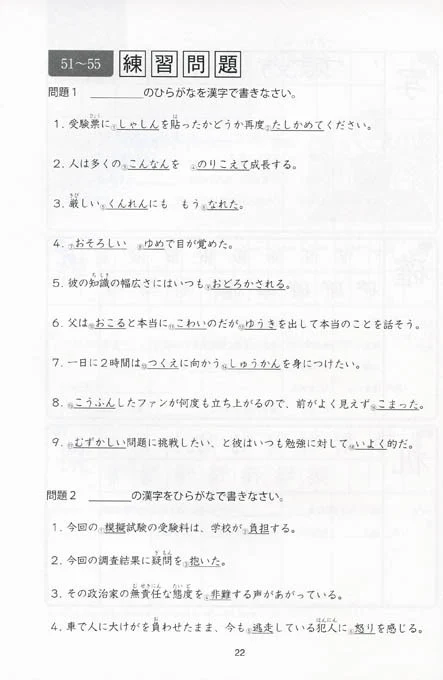 51～55 練習問題
問題1 ________のひらがなを漢字で書きなさい。
1. 受験票に①しゃしんを貼ったかどうか再度②たしかめてください。
2. 人は多くの③こんなんを ④のりこえて成長する。
3. 厳しい⑤くんれんにも もう⑥なれた。
4. ⑦おそろしい ⑧ゆめで目が覚めた。
5. 彼の知識の幅広さにはいつも⑨おどろかされる。
6. 父は⑩おこると本当に⑪こわいのだが⑫ゆうきを出して本当のことを話そう。
7. 一日に2時間は⑬つくえに向かう⑭しゅうかんを身につけたい。
8. ⑮こうふんしたファンが何度も立ち上がるので、前がよく見えず⑯こまった。
9. ⑰むずかしい問題に挑戦したい、と彼はいつも勉強に対して⑱いよく的だ。
問題2 ________の漢字をひらがなで書きなさい。
1. 今回の①模擬試験の受験料は、学校が②負担する。
2. 今回の調査結果に疑問を③抱いた。
3. その政治家の無責任な態度を④非難する声があがっている。
4. 車で人に大けがを負わせたまま、今も⑤逃走している犯人に⑥怒りを感じる。
22